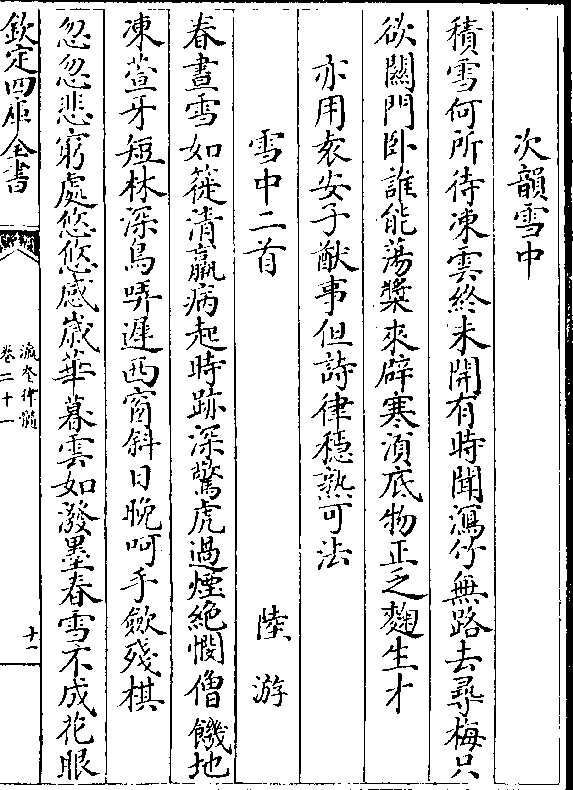 次韻雪中
積雪何所待凍雲終未開有時聞瀉竹無路去尋梅只
欲闗門卧誰能蕩槳來辟寒湏底物正乏麴生才
亦用袁安子猷事但詩律穩熟可法
雪中二首 陸游
春晝雪如簁清羸病起時跡深驚虎過煙絶憫僧饑地
凍萱牙短林深鳥哢遲西窗斜日晚呵手斂殘棋
忽忽悲窮處悠悠感嵗華暮雲如潑墨春雪不成花眼
欽定四庫全書
瀛奎律髓
卷二十一
十一